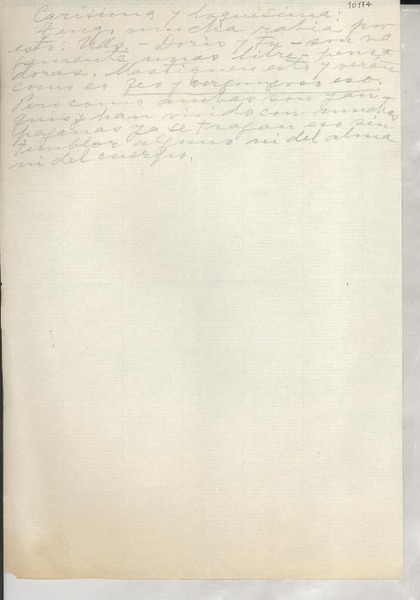 10174
Carísima y loquísima:
Tengo mucha rabia por
esto: Uds. - Doris y tu - son na
amente unas libre-pensa
doras. Mastiquen esto y verán
como es feo y vergonzoso eso.
Pero como ambas son yan
quis y han vivido con muchas
paganas ya se tragan eso sin
temblor alguno ni del alma
ni del cuerpo.